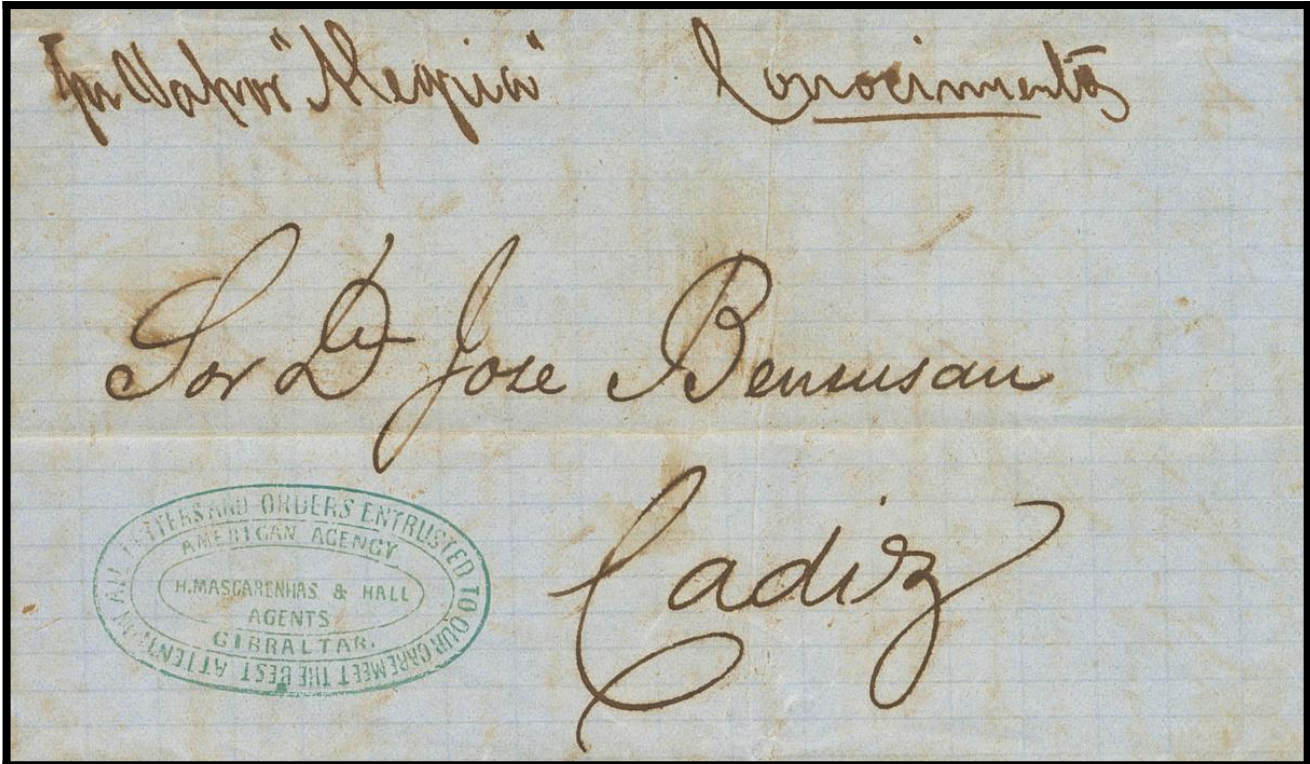 por Vapor "Alegria" Conocimientos
Sor Dn Jose Bensusan
Cadiz
ALL LETTERS AND ORDERS ENTRUSTED TO OUR CARE MEET THE BEST ATTENTION
AMERICAN AGENCY
H. MASCARENHAS & HALL
AGENTS
GIBRALTAR.